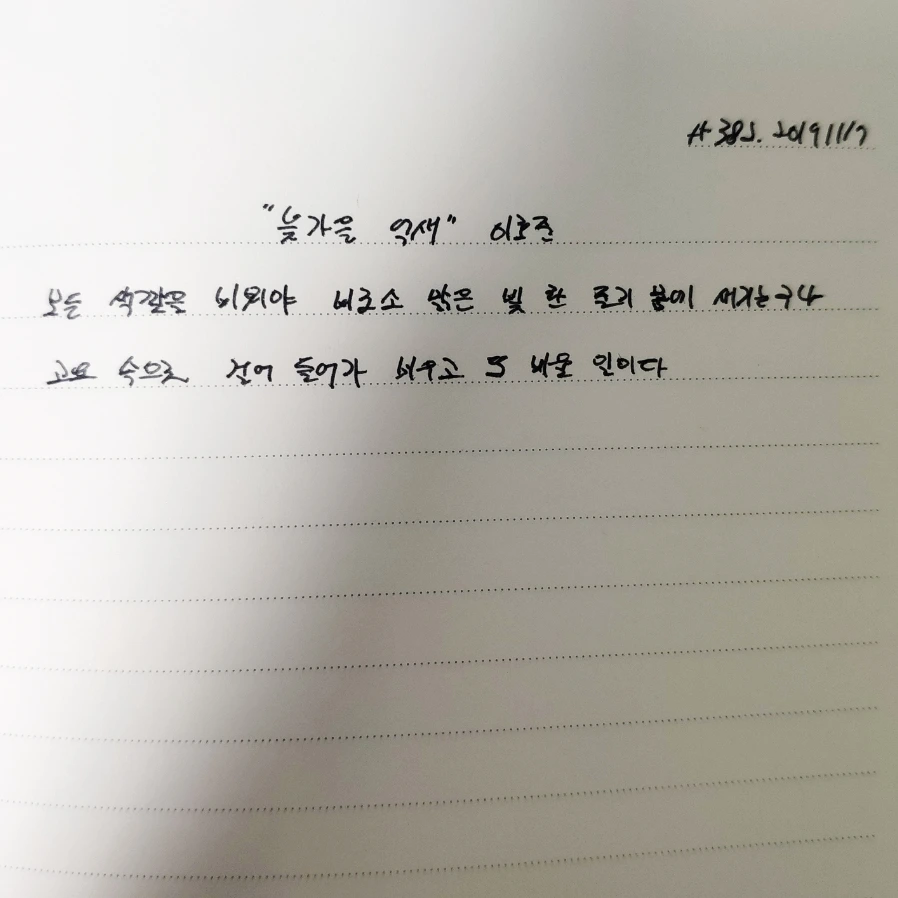 #382. 20191117
"늦가을 억새" 이호준
모든 색깔을 비워야 비로소 맑은 빛 한 줄기 몸에 새기는구나
고요 속으로 걸어 들어가 비우고 또 비울 일이다